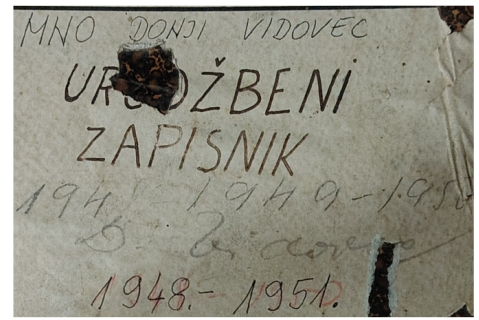 MNO DONJI VIDOVEC
UR DŽBENI
ZAPISNIK
1948-1949-1950
D. Vidovec
1948.- 1951.